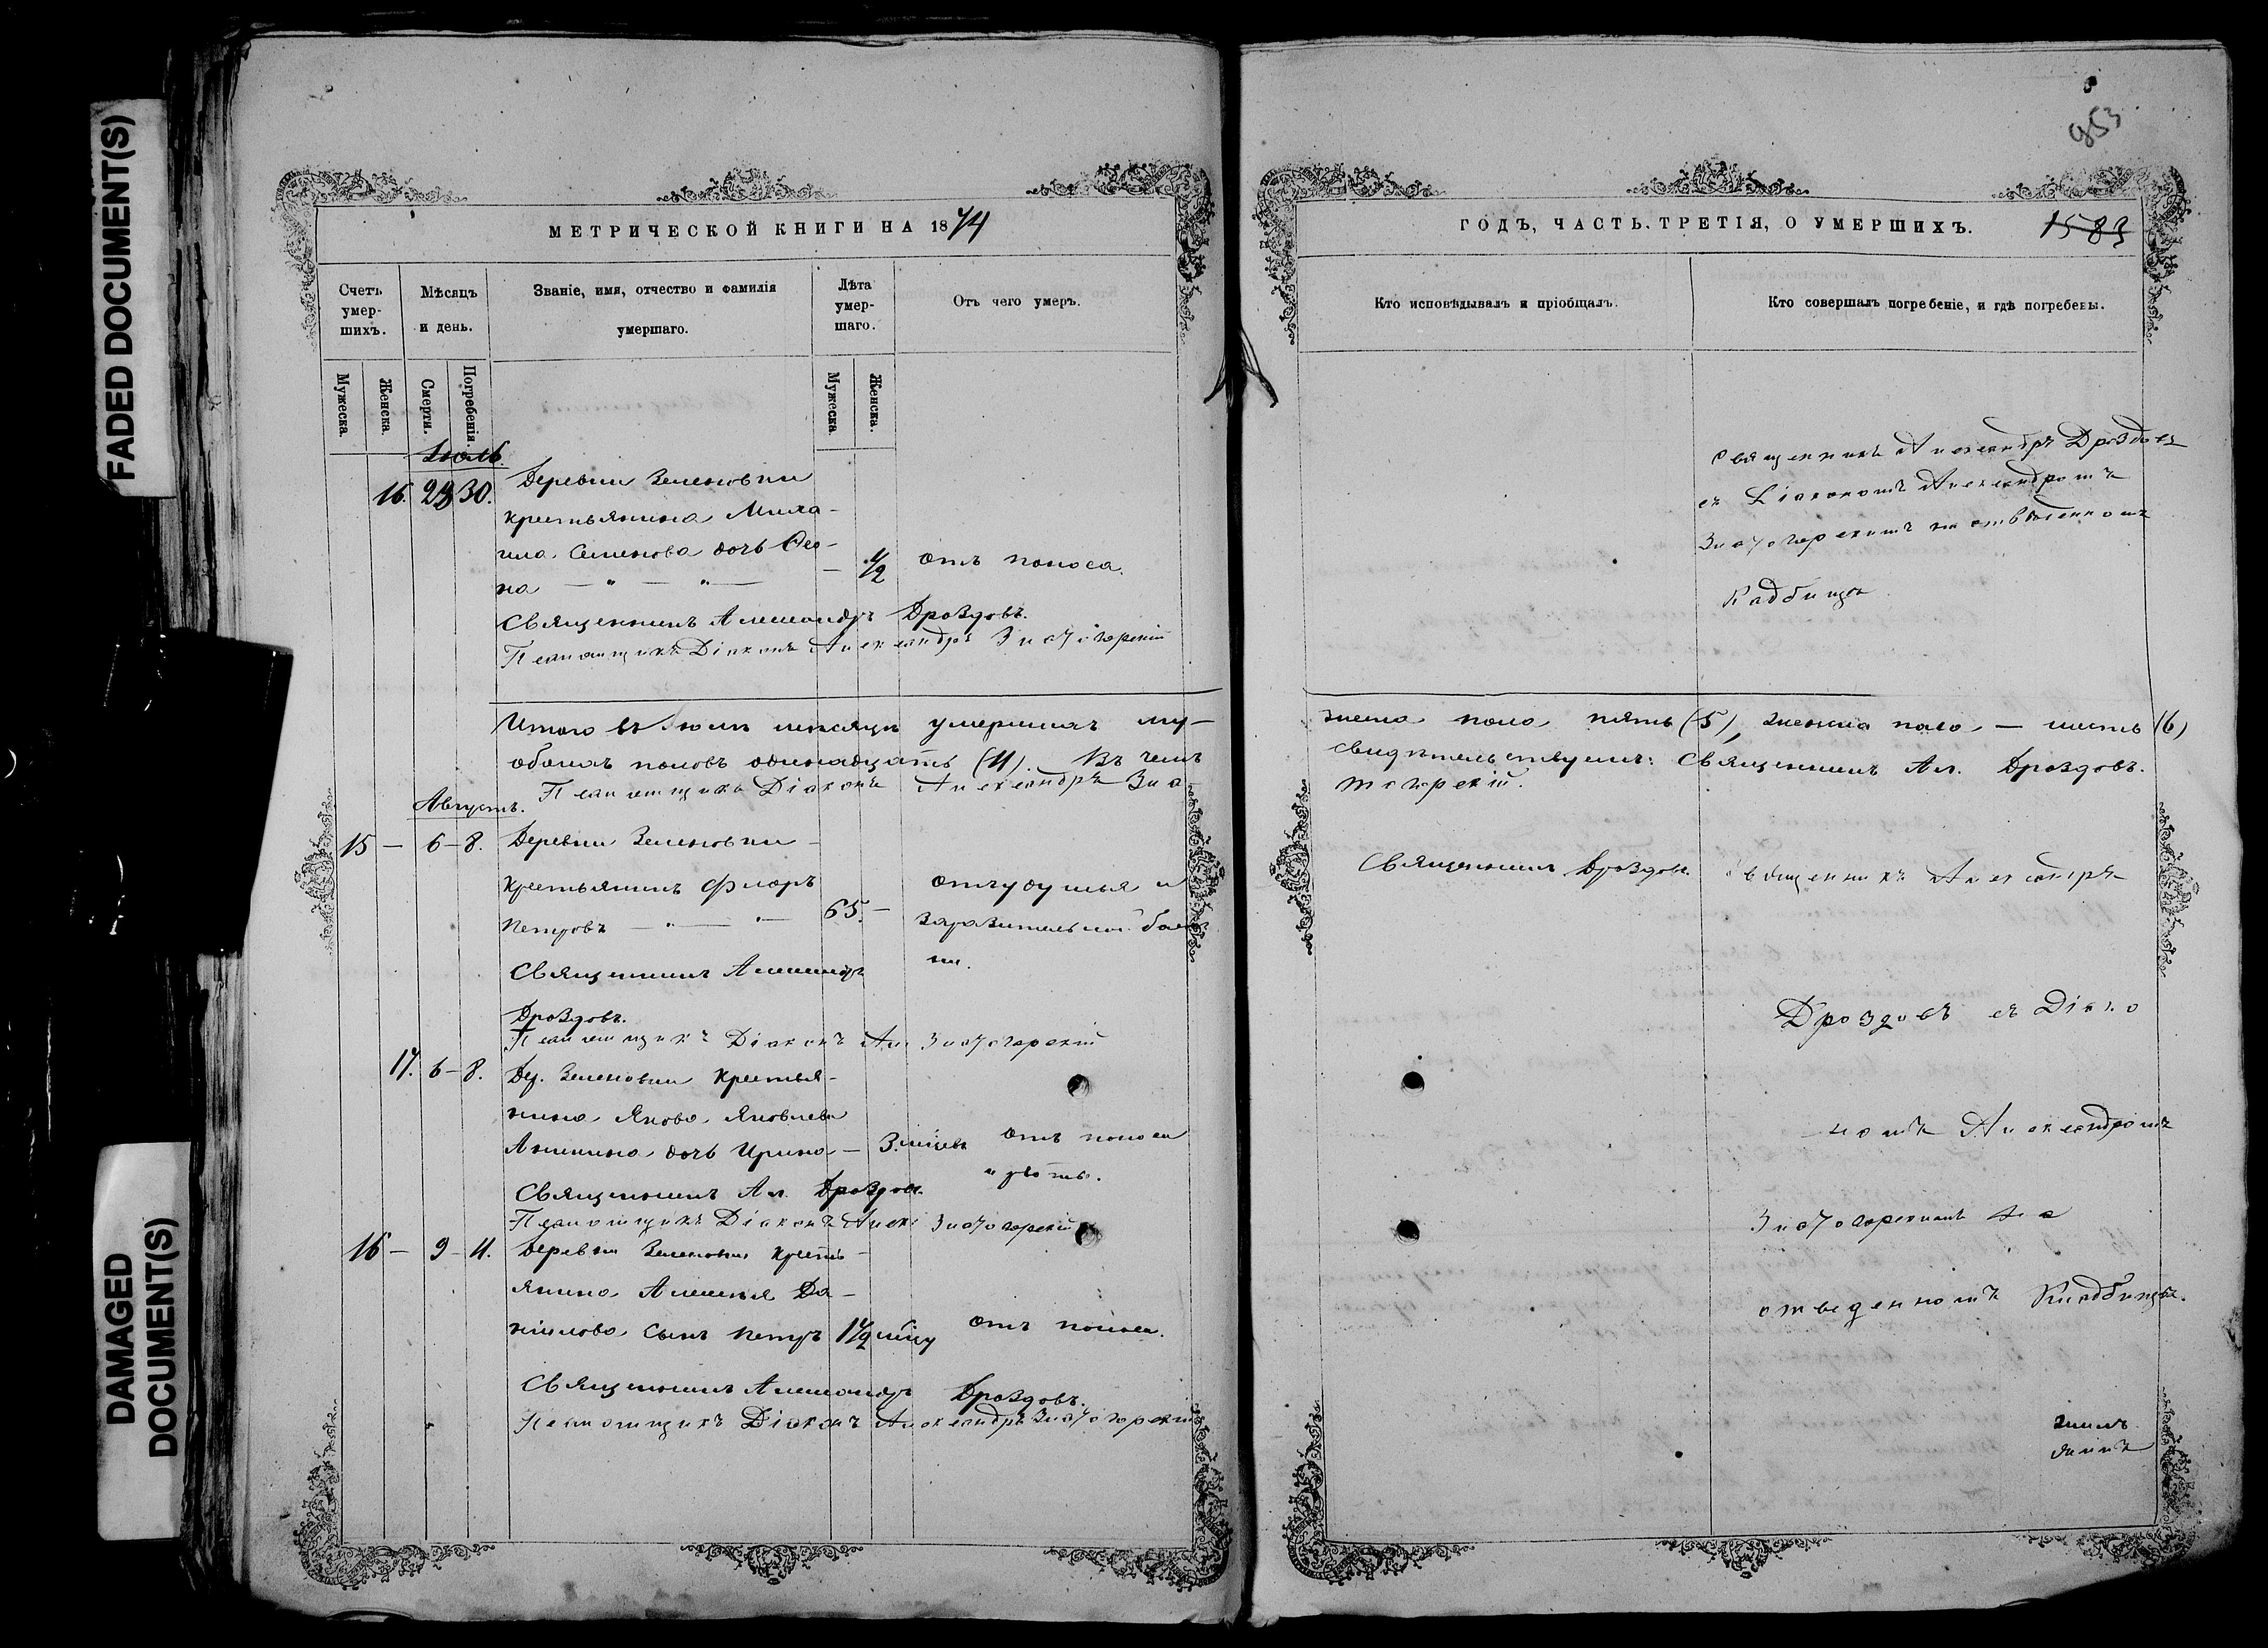 FADED DOCUMENT(S)
DAMAGED
DOCUMENT(S)
МЕТРИЧЕСКОЙ КНИГИ НА 1874
Счетъ умер-шихъ.
Мѣсяцъ и день.
Званіе, имя, отчество и фамилія умершаго.
Лѣта умер-шаго.
Отъ чего умеръ.
Мужеска.
Женска.
Смерти.
Погребенія.
Мужеска.
Женска.
Іюль.
16. 28 30. Деревни Зеленовки
крестьянина Миха-
ила Семенова дочь Ѳео-
на — „ — „ — — 1/2 отъ поноса.
Священникъ Александръ Дроздовъ.
Псаломщикъ Діаконъ Александръ Златогорскій
Итого въ Іюлѣ мѣсяцѣ умершихъ му-
обоихъ половъ одинадцать (11). Въ чемъ
Псаломщикъ Діаконъ Александръ Зла-
Августъ.
15 — 6 — 8. Деревни Зеленовки
крестьянинъ Флоръ
Петровъ — „ — 65. — отъ удушья и
заразительной
Священникъ Александръ
Дроздовъ.
Псаломщикъ Діаконъ Ал. Златогорскій
17. 6 — 8. Дер. Зеленовки крестья-
нина Якова Яковлева
Аникина дочь Ирина — 3. мѣсев. отъ поноса
и рвоты.
Священникъ Ал. Дроздовъ.
Псаломщикъ Діаконъ Алекс Златогорскій
16 — 9 — 11. Деревни Зеленовки кресть-
янина Алексѣя Да-
нилова сынъ Петръ 1 1/2 мѣсц отъ поноса.
Священникъ Александръ Дроздовъ.
Псаломщикъ Діаконъ Александръ Златогорскій
953
ГОДЪ, ЧАСТЬ ТРЕТІЯ, О УМЕРШИХЪ.
1583
Кто исповѣдывалъ и пріобщалъ.
Кто совершалъ погребеніе, и гдѣ погребены.
Священникъ Александръ Дроздовъ
съ Діакономъ Александромъ
Златогорскимъ на отведенномъ
Кладбищѣ
жеска пола пять (5), женска пола — шесть (6)
свидѣтельствуемъ: Священникъ Ал. Дроздовъ.
тогорскій.
Священникъ Дроздовъ
Священникъ Александръ
Дроздовъ съ Діако
номъ Александромъ
Златогорскимъ на
отведенномъ Кладбищѣ.